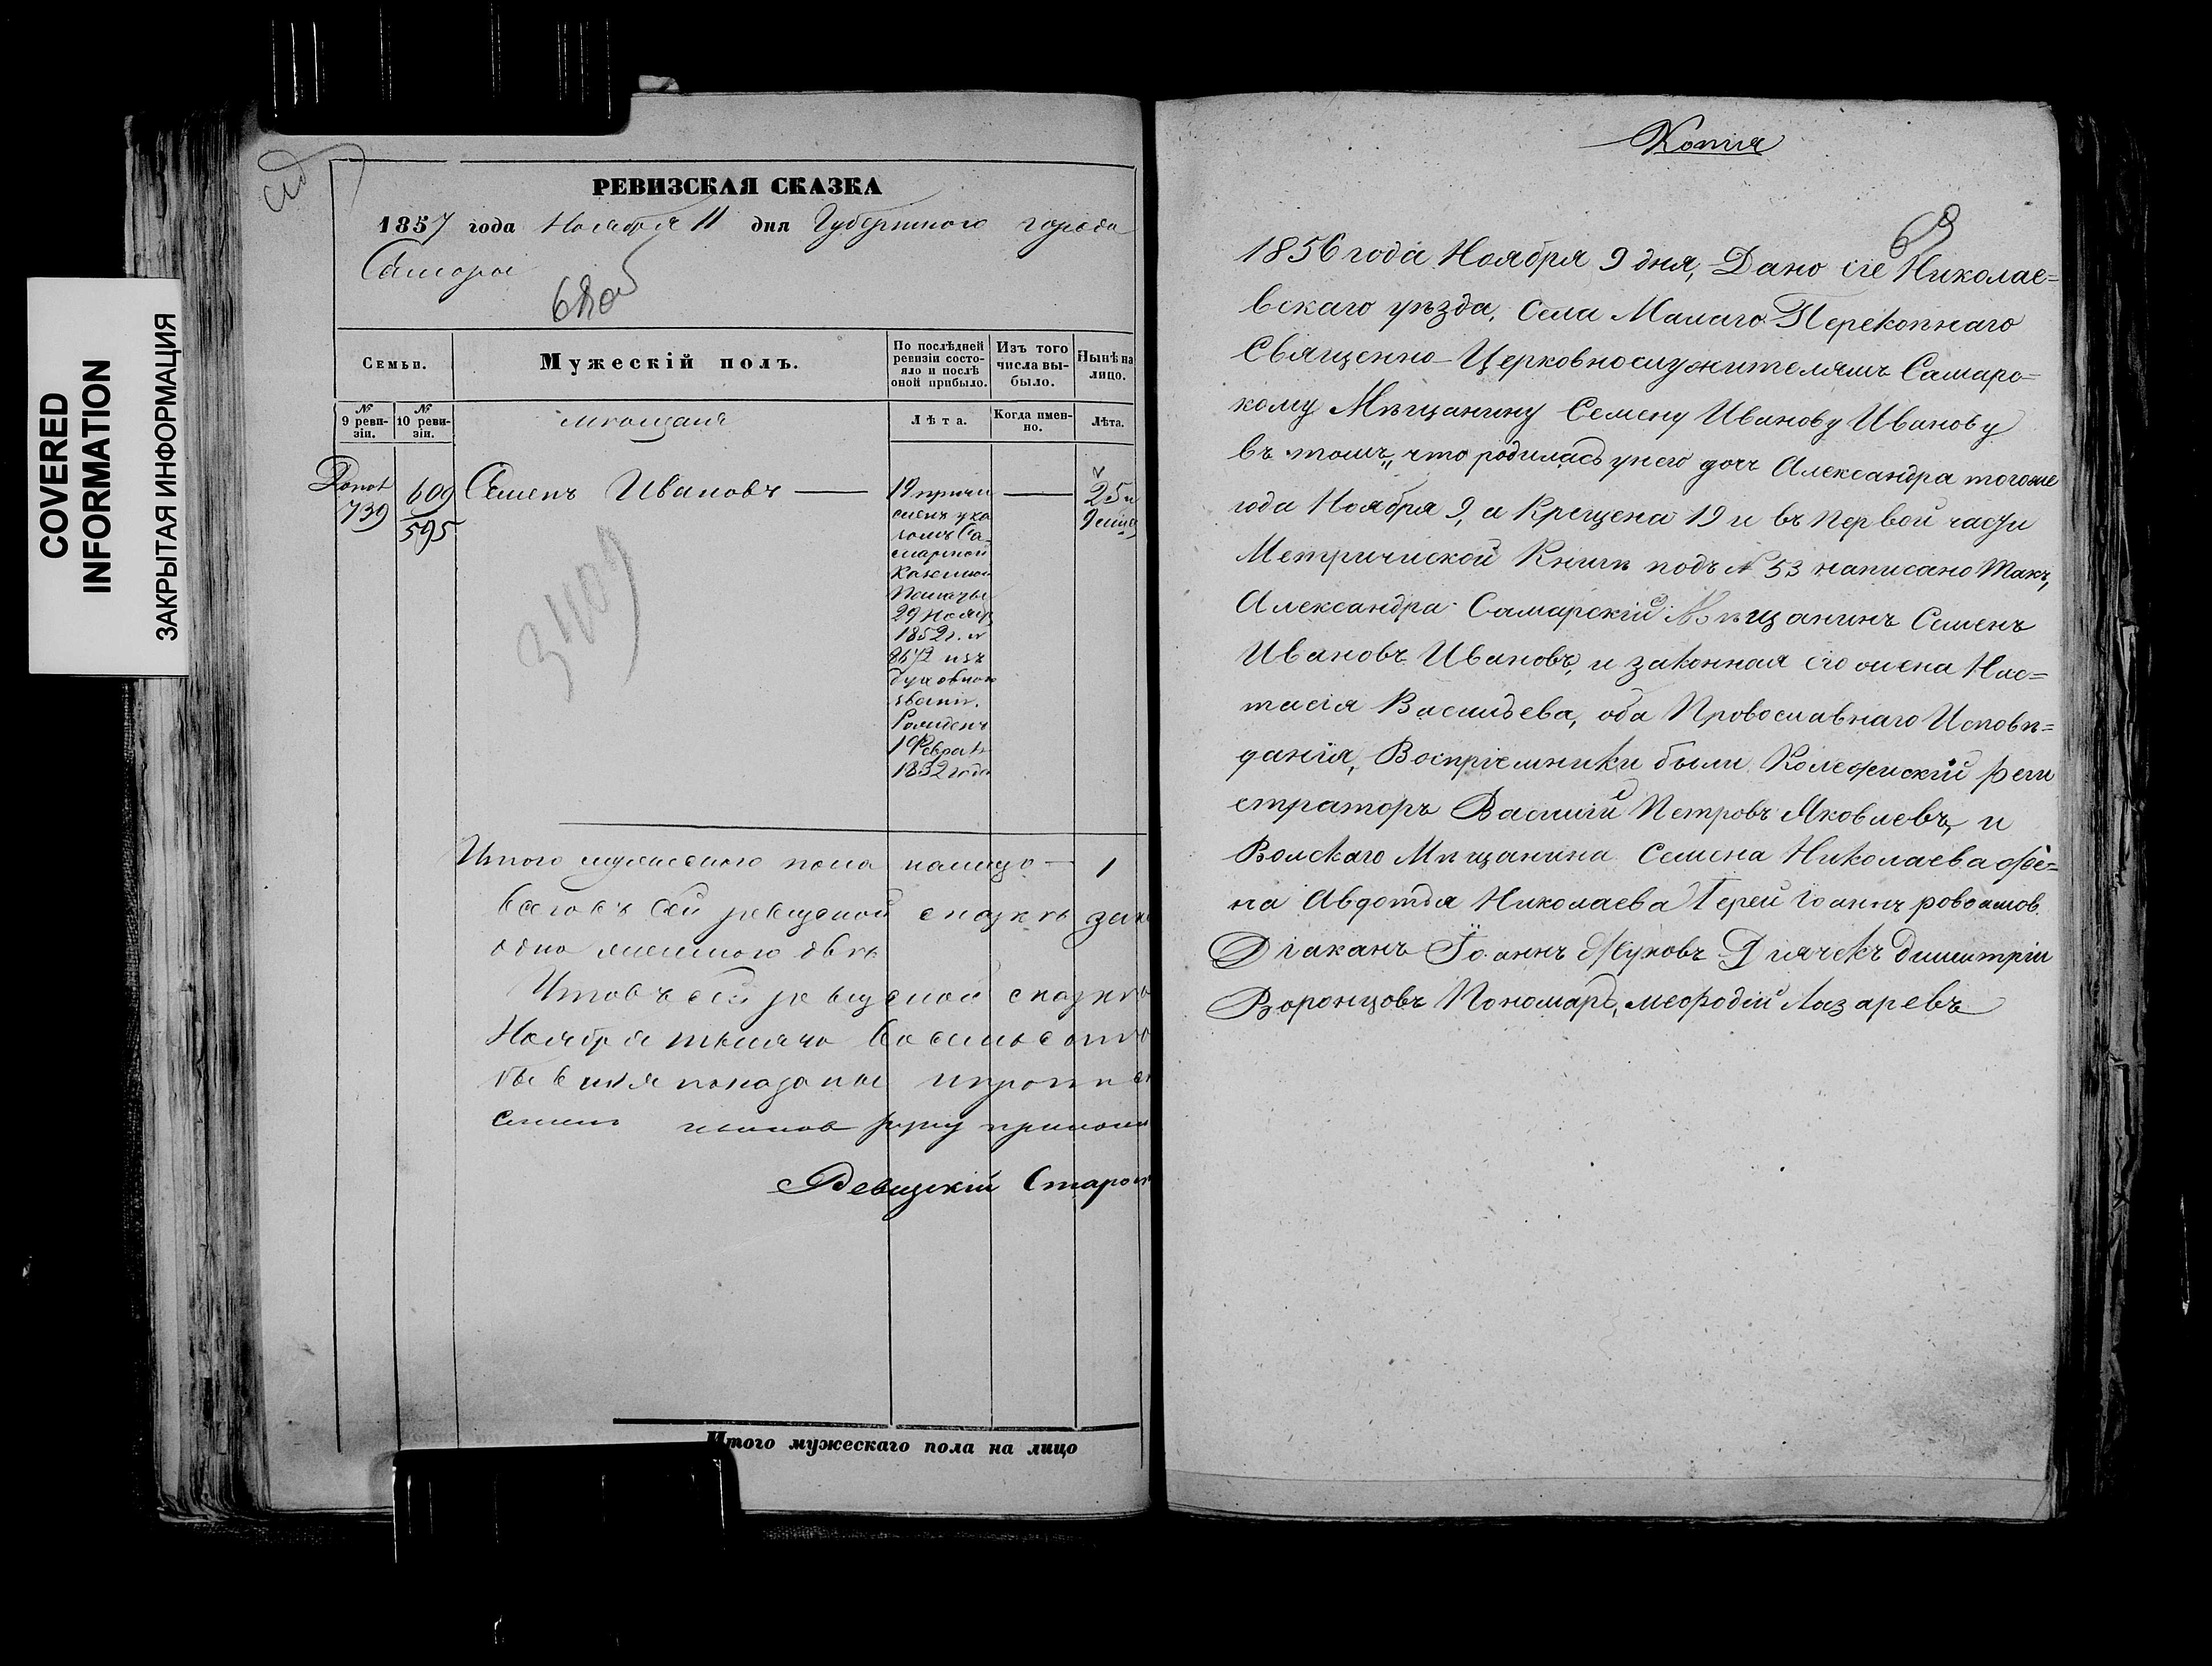 COVERED
INFORMATION
ЗАКРЫТАЯ ИНФОРМАЦИЯ
РЕВИЗСКАЯ СКАЗКА
1857 года Ноября 11 дня Губернского города
Самары
68об
Семьи.
Мужескій полъ.
По послѣдней ревизіи состо-
яло и послѣ
оной прибыло.
Изъ того
числа вы-
было.
Нынѣ на
лицо.
№
9 реви-
зіи.
№
10 реви-
зіи.
мещане
Лѣта.
Когда имен-
но.
Лѣта.
Допол
739
609
595
Семенъ Ивановъ —
19 причи
сленъ ука
зомъ Са-
марской
Казенной
Палаты
29 Нояб
1852 г. №
8672 изъ
духовнаго
званія.
Рожденъ
1 Феврал
1832 года
—
25 и
9 мѣся
3409
Итого мужескаго пола налицо — 1
всего въ сей ревизской сказкѣ
одна
Что въ сей ревизской сказкѣ
Ноября тысяча Восемьсотъ
показаны
Семенъ Иванов руку прилож
Ревизскій Старос
Итого мужескаго пола на лицо
Копія
69
1856 года Ноября 9 дня, Дано сіе Николае=
вскаго уѣзда, Села Малаго Перекопнаго
Священно-Церковнослужителямъ Самарс=
кому Мѣщанину Семену Иванову Иванову
въ томъ, что родилась у него дочь Александра тогоже
года Ноября 9, а Крещена 19 и въ первой части
Метрической Книги подъ № 53 написано такъ,
Александра Самарскій Мѣщанинъ Семенъ
Ивановъ Ивановъ, и законная его жена Нас=
тасія Васильева, оба Провославнаго Исповѣ=
данія, Воспріемники были Колежскій реги
страторъ Василій Петровъ Яковлевъ, и
Волскаго Мѣщанина Семена Николаева же=
на Авдотья Николаева Іерей Іоаннъ
Діаканъ Іоаннъ Жуковъ Дьячекъ димитрій
Воронцовъ Пономарь, мефодій Лазаревъ